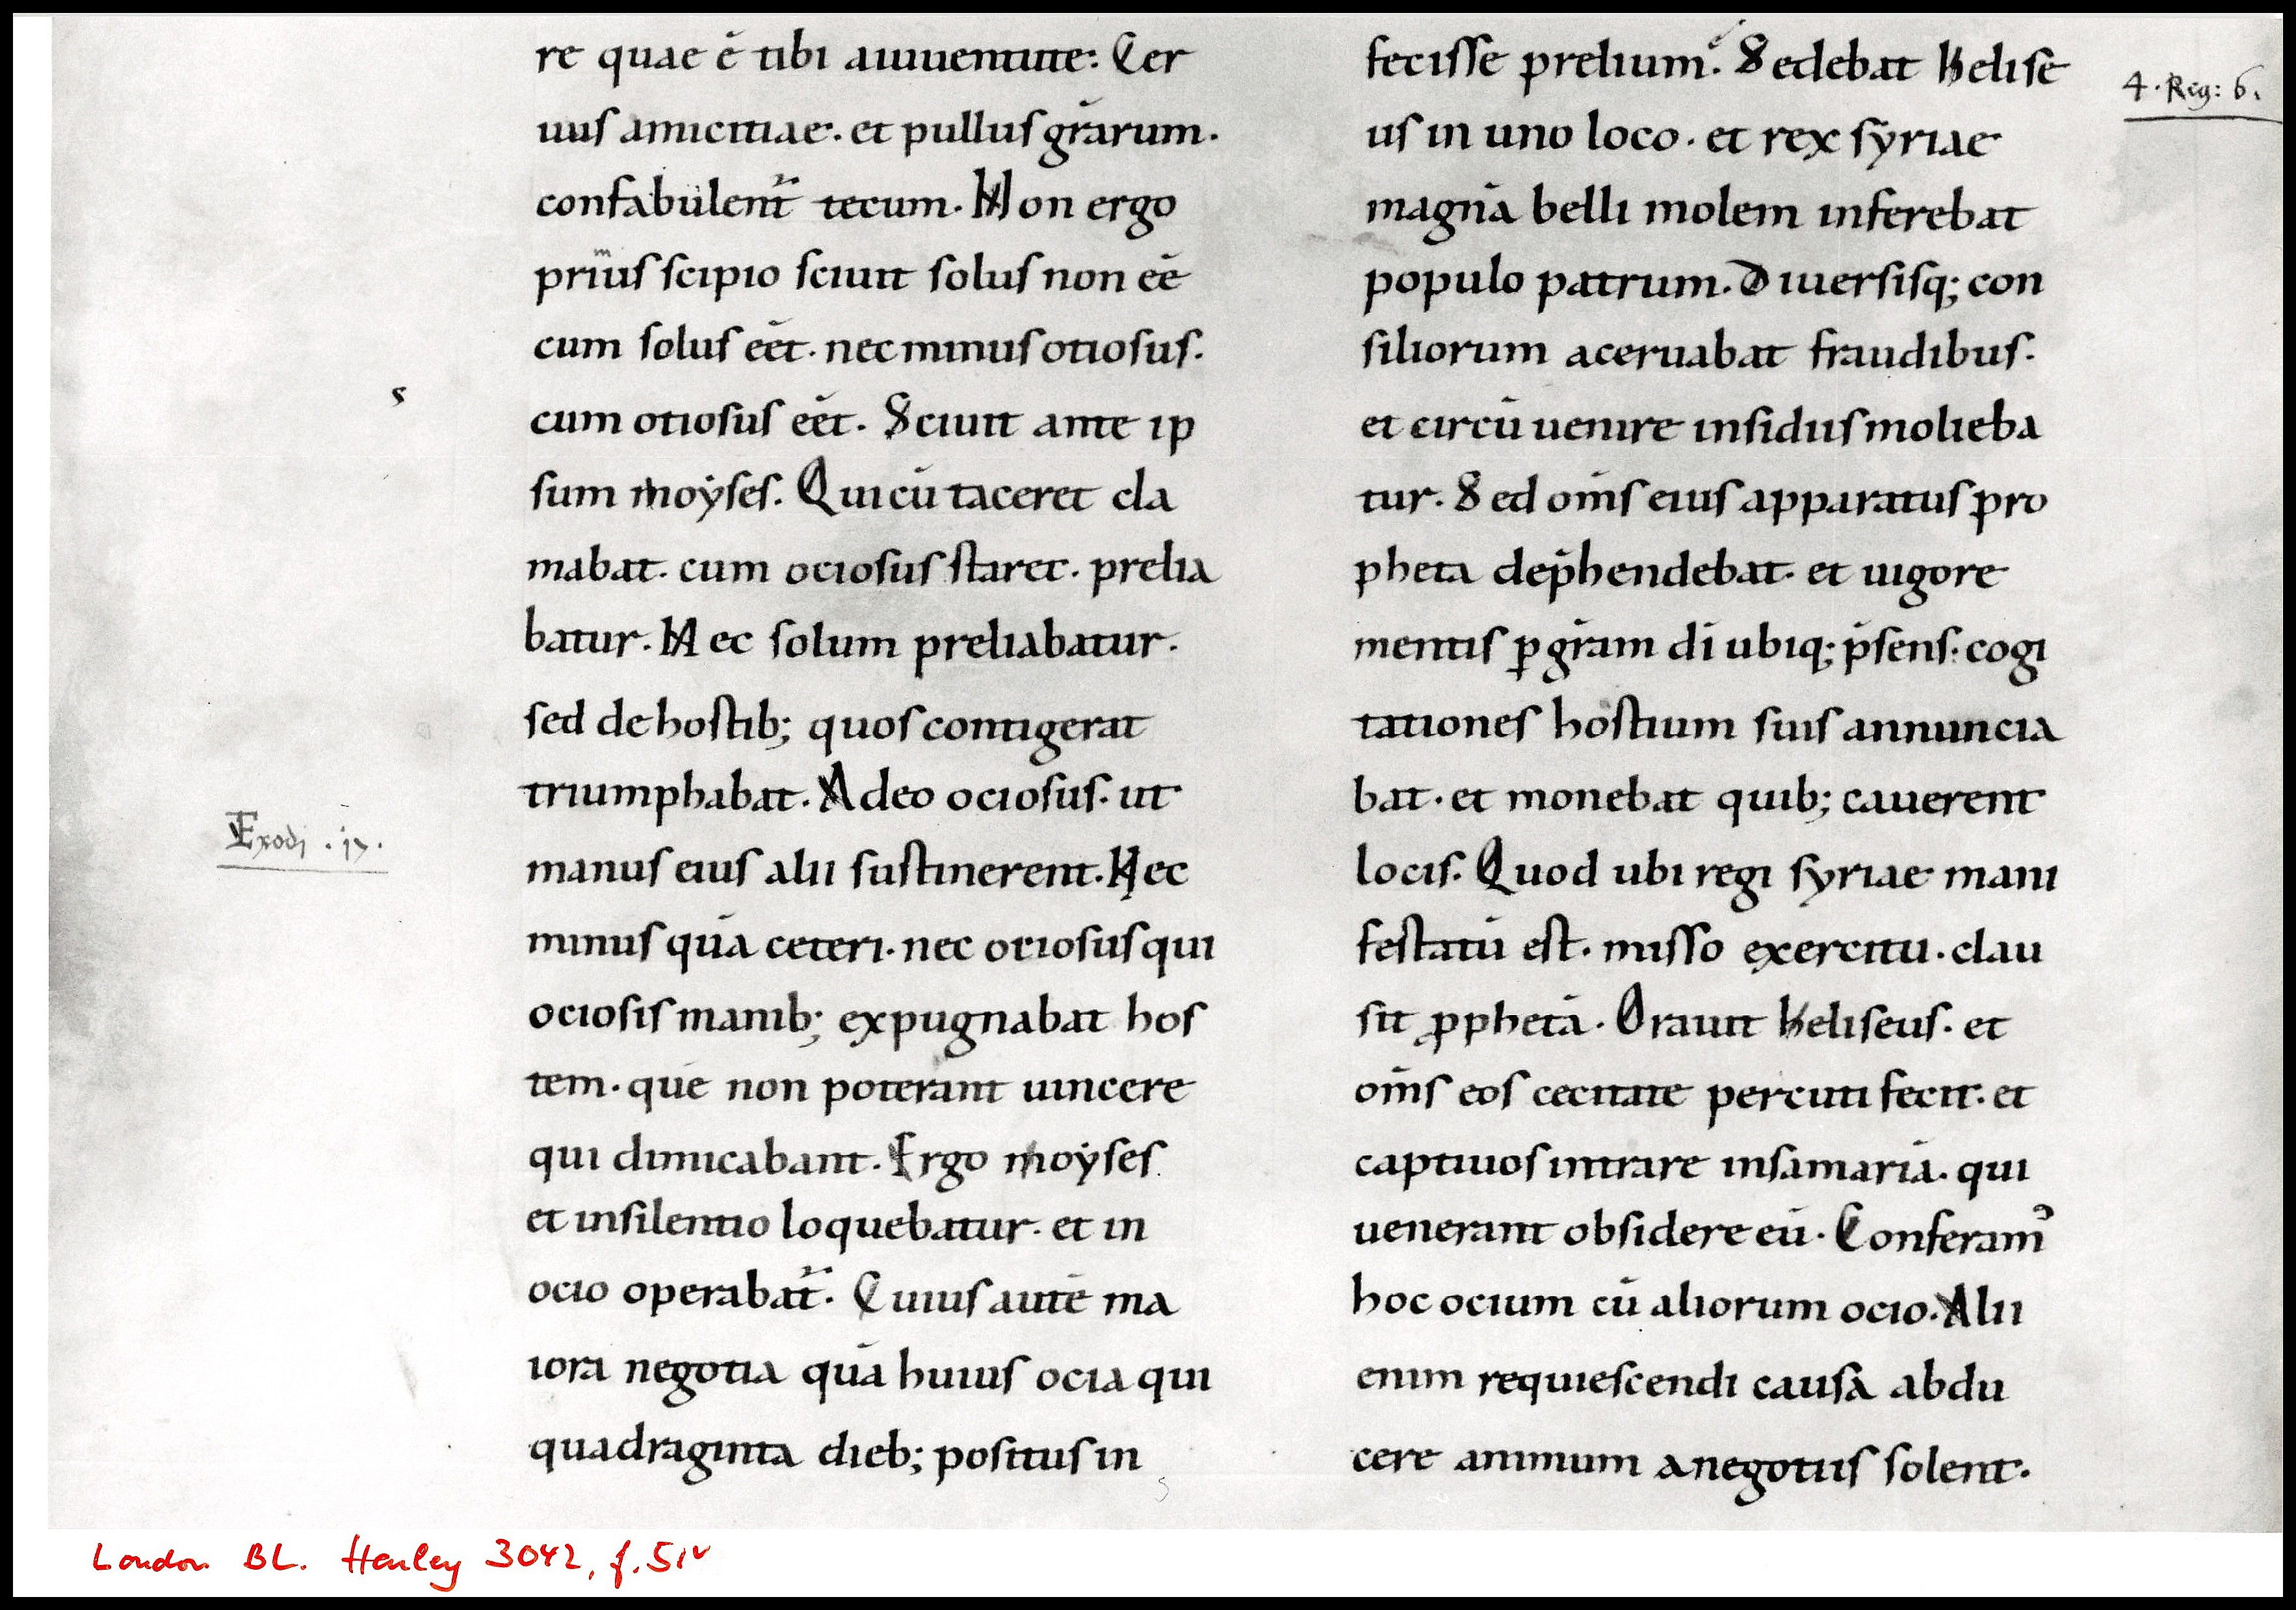 re quae ē tibi a iuuentute: Cer
uus amicitiae. et pullus grārum.
confabulent̃ tecum. Non ergo
prim̄us scipio sciuit solus non eē
cum solus eēt. nec minus otiosus.
s
cum otiosus eēt. Sciuit ante ip
sum moẏses. Qui cū taceret cla
mabat. cum ociosus staret. prelia
batur. Nec solum preliabatur.
sed de hostib; quos contigerat
triumphabat. Adeo ociosus. ut
Exodi .17.
manus eius alii sustinerent. Nec
minus quā ceteri. nec otiosus qui
ociosis manib; expugnabat hos
tem. quē non poterant uincere
qui dimicabant. Ergo moẏses
et in silentio loquebatur. et in
ocio operabat̃. Cuius autē ma
iora negotia quā huius ocia qui
quadraginta dieb; positus in
fecisse prelium. Sedebat heliseꞌ
4. Reg: 6.
us in uno loco. et rex sẏriae
magnā belli molem inferebat
populo patrum. Diuersisq; con
siliorum aceruabat fraudibus.
et circū uenire insidiis molieba
tur. Sed om̄s eius apparatus pro
pheta dep̄hendebat. et uigore
mentis ꝑ grām dī ubiq; p̄sens. cogi
tationes hostium suis annuncia
bat. et monebat quib; cauerent
locis. Quod ubi regi syriae mani
festatū est. misso exercitu. clau
sit ꝓphetā. Orauit heliseus. et
om̄s eos cecitate percuti fecit. et
captiuos intrare in samariā. qui
uenerant obsidere eū. Conferamꝰ
hoc ocium cū aliorum ocio. Alii
enim requiescendi causa abdu
cere animum a negotiis solent.
London BL. Harley 3042, f.51v